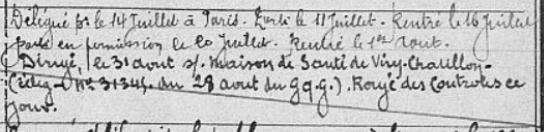 Délégué pr le 14 Juillet à Paris. Parti le 11 Juillet. Rentré le 16 Juillet
parti en permission le 20 Juillet. Rentré le 1er Aout.
Dirigé, le 31 aout s/ maison de Santé de Viry-Chatillon-
(télég. Nr 31345. du 28 aout du G.Q.G.). Rayé des Controles ce
jour.